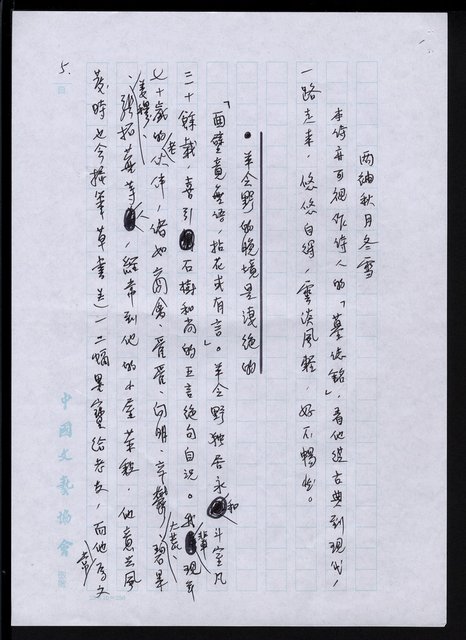 兩袖秋月冬雪
本詩亦可視作詩人的「墓誌銘」，看他從古典到現代，
一路走來，悠悠自得，雲淡風輕，好不暢然。
●羊令野的晚境是淒絕的
「面壁竟無語，拈花或有言。」羊令野獨居永和斗室凡
二十餘載，喜引石樹和尚的五言絕句自況。我輩現年
七十歲的老伙伴，諸如商禽、管管、向明、辛鬱、碧果、
大荒、姜穆、張拓蕪等，經常到他的小屋茶敘，他意興風
發時也會揮筆草書送一二幅墨寶給老友，而他為文
常
5.
中國文藝協會